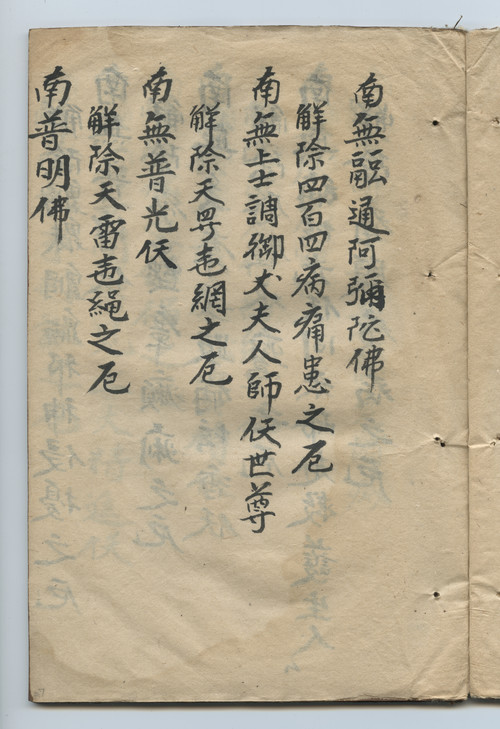 南無融通阿彌陀佛
解除四百四病痛患之厄
南無上士調御丈夫人師仸世尊
解除天網之厄
南無普光仸
解除天雷繩之厄
南普明佛